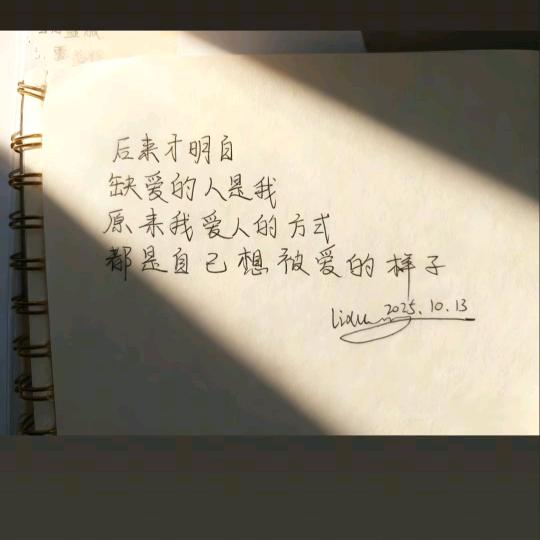 后来才明白
缺爱的人是我
原来我爱人的方式
都是自己想被爱的样子
2025.10.13